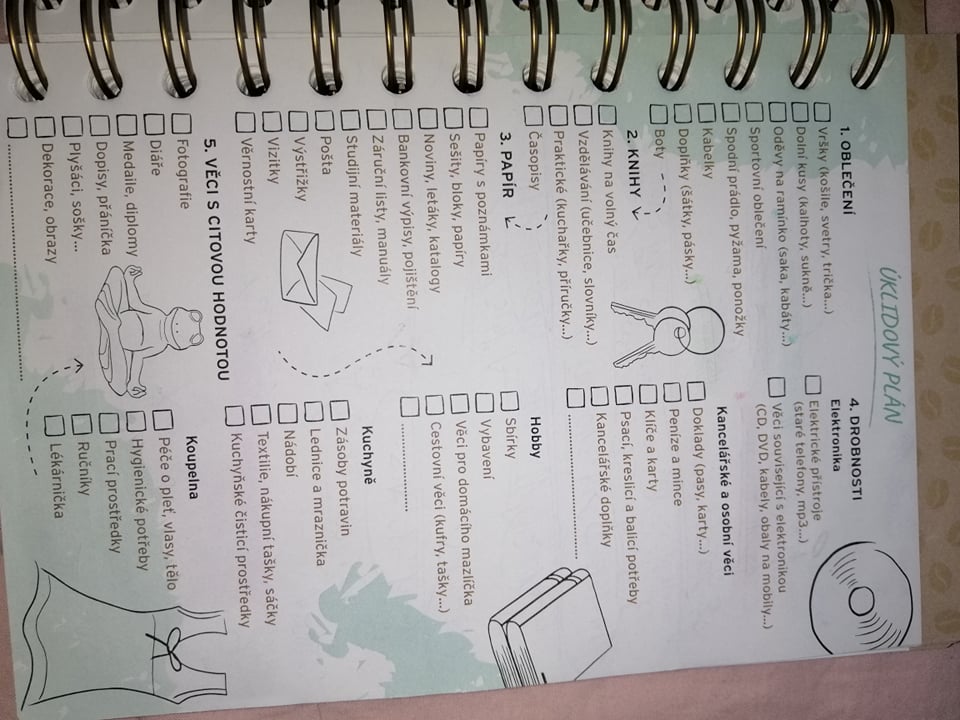 ÚKLIDOVÝ PLÁN
1. OBLEČENÍ
Vršky (košile, svetry, trička...)
Dolní kusy (kalhoty, sukně...)
Oděvy na ramínko (saka, kabáty...)
Sportovní oblečení
Spodní prádlo, pyžama, ponožky
Kabelky
Doplňky (šátky, pásky...)
Boty
2. KNIHY
Knihy na volný čas
Vzdělávání (učebnice, slovníky...)
Praktické (kuchařky, příručky...)
Časopisy
3. PAPÍR
Papíry s poznámkami
Sešity, bloky, papíry
Noviny, letáky, katalogy
Bankovní výpisy, pojištění
Záruční listy, manuály
Studijní materiály
Pošta
Výstřižky
Vizitky
Věrnostní karty
4. DROBNOSTI
Elektronika
Elektrické přístroje
(staré telefony, mp3...)
Věci související s elektronikou
(CD, DVD, kabely, obaly na mobily...)
Kancelářské a osobní věci
Doklady (pasy, karty...)
Peníze a mince
Klíče a karty
Psací, kreslicí a balicí potřeby
Kancelářské doplňky
Hobby
Sbírky
Vybavení
Věci pro domácího mazlíčka
Cestovní věci (kufry, tašky...)
Kuchyně
Zásoby potravin
Lednice a mraznička
Nádobí
Textilie, nákupní tašky, sáčky
Kuchyňské čisticí prostředky
Koupelna
Péče o pleť, vlasy, tělo
Hygienické potřeby
Prací prostředky
Ručníky
Lékárnička
5. VĚCI S CITOVOU HODNOTOU
Fotografie
Diáře
Medaile, diplomy
Dopisy, přáníčka
Plyšáci, sošky...
Dekorace, obrazy